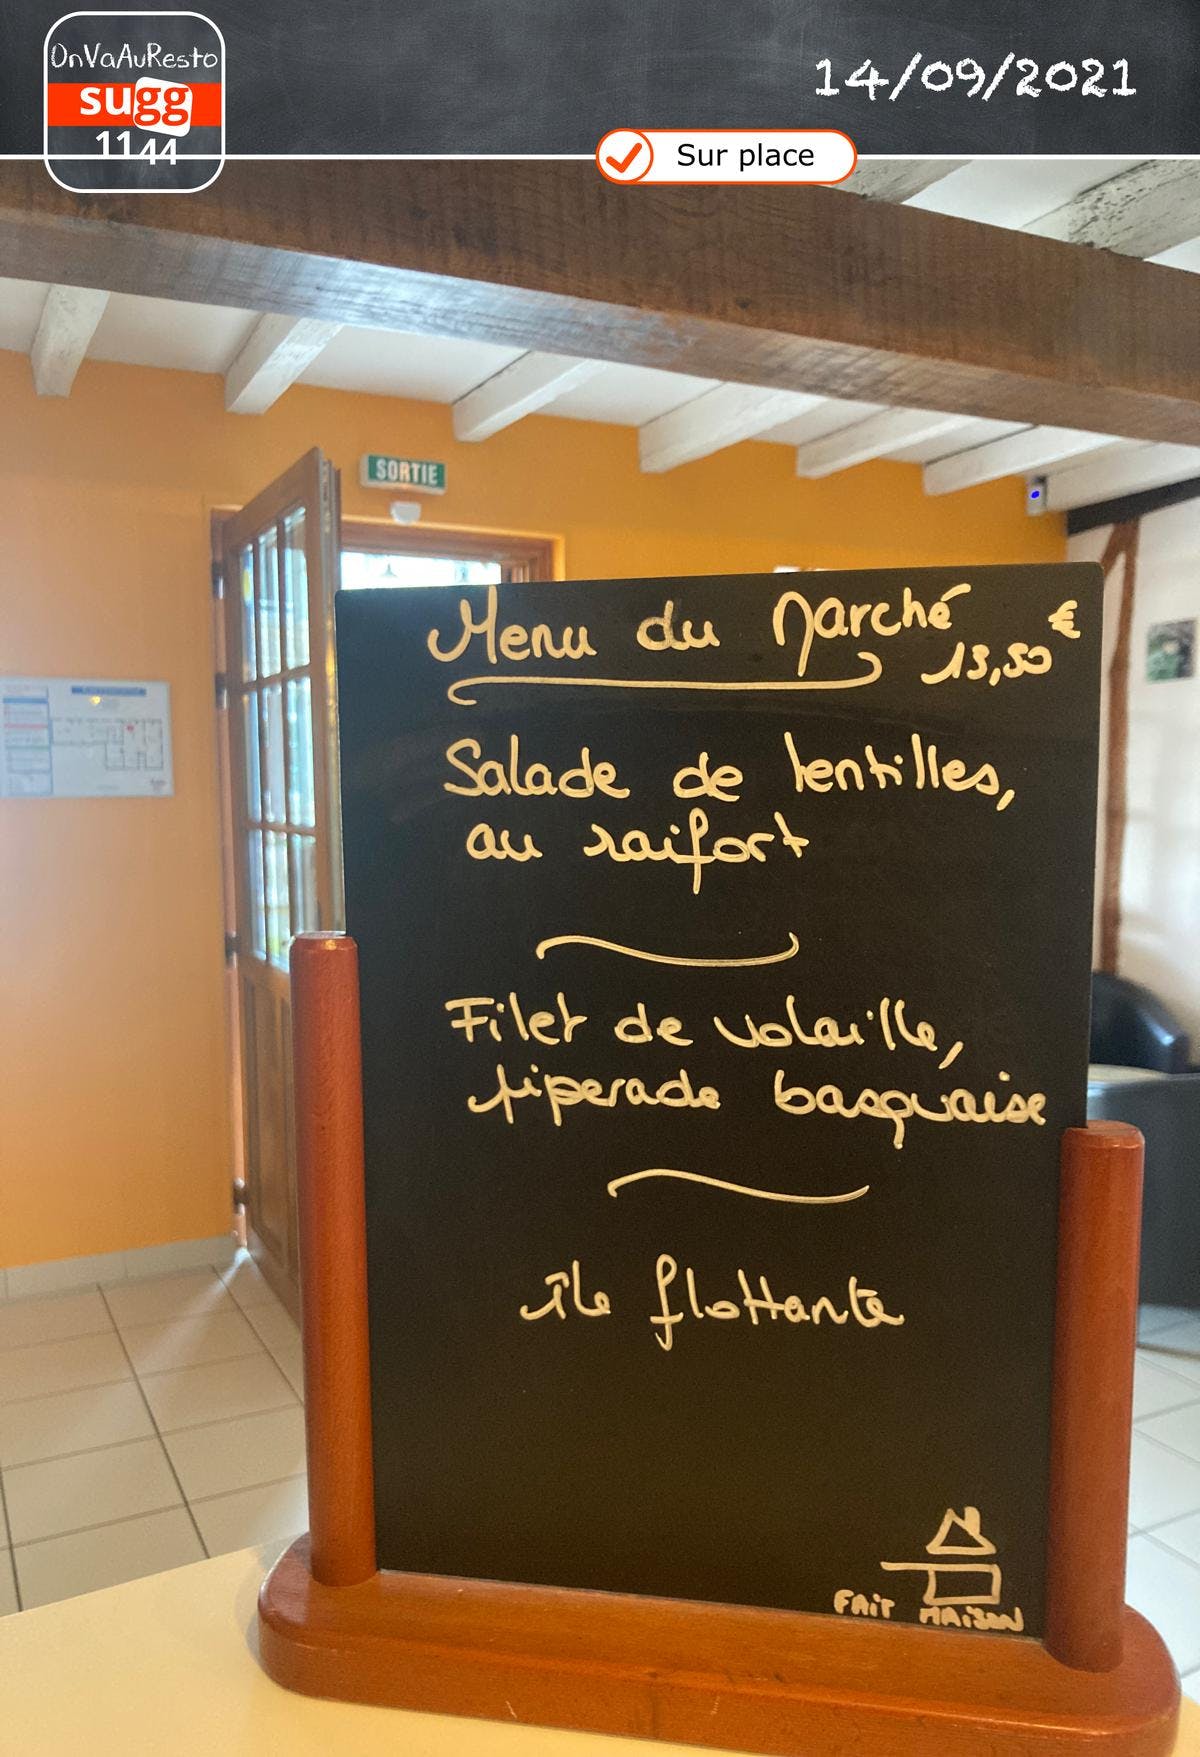 OnVaAuResto
sugg
1144
14/09/2021
Sur place
SORTIE
Menu du Marché
13,50 €
Salade de lentilles,
au raifort
Filet de volaille,
piperade basquaise
île flottante
FAIT MAISON